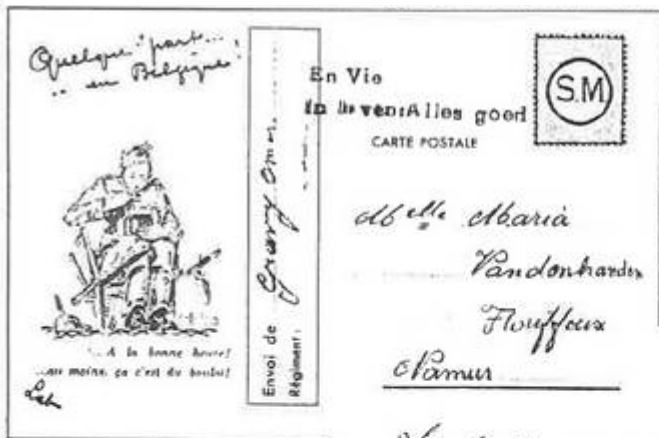 Quelque part...
.. en Belgique!
... A la bonne heure!
...au moins, ça c'est du boulot!
Envoi de
Omer
Régiment:
En Vie
in leven Alles goed
CARTE POSTALE
S.M.
Melle Maria
Vandenhanden
Floriffoux
Namur